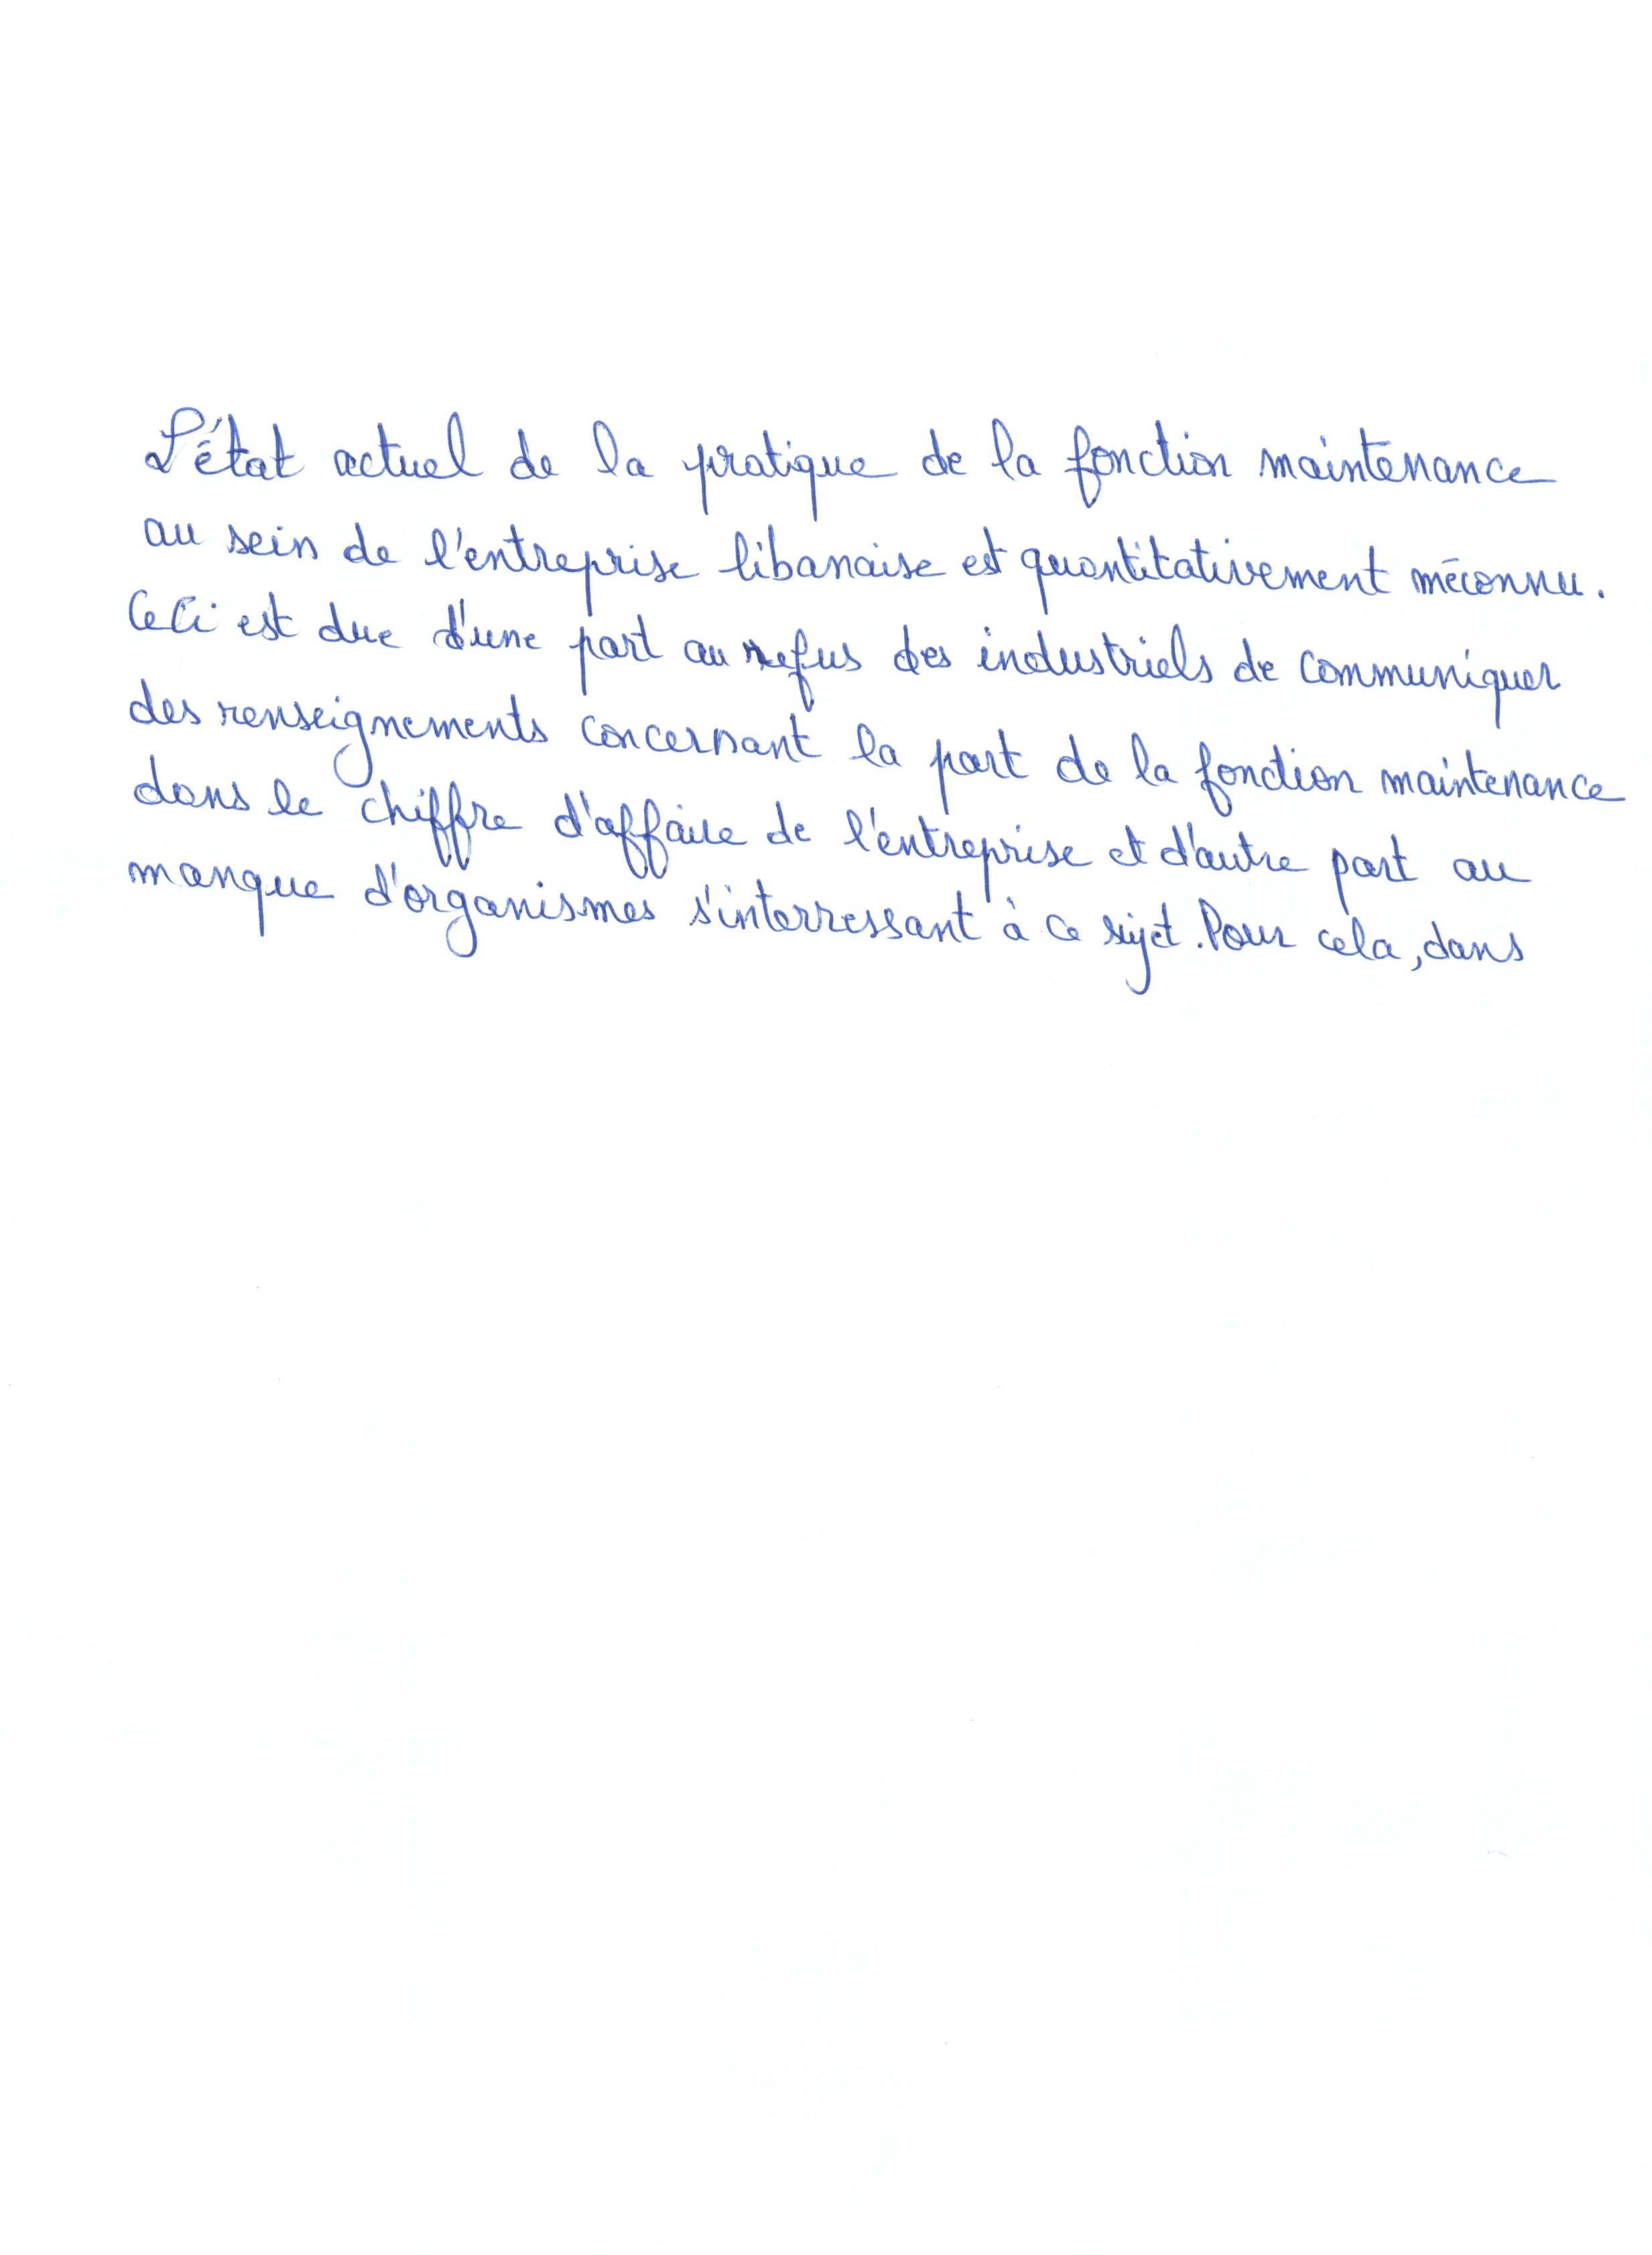 L'état actuel de la pratique de la fonction maintenance
au sein de l'entreprise libanaise est quantitativement méconnu.
CeCi est due d'une part au refus des industriels de communiquer
des renseignements concernant la part de la fonction maintenance
dans le chiffre d'affaire de l'entreprise et d'autre part au
manque d'organismes s'interressant à ce sujet. Pour cela, dans